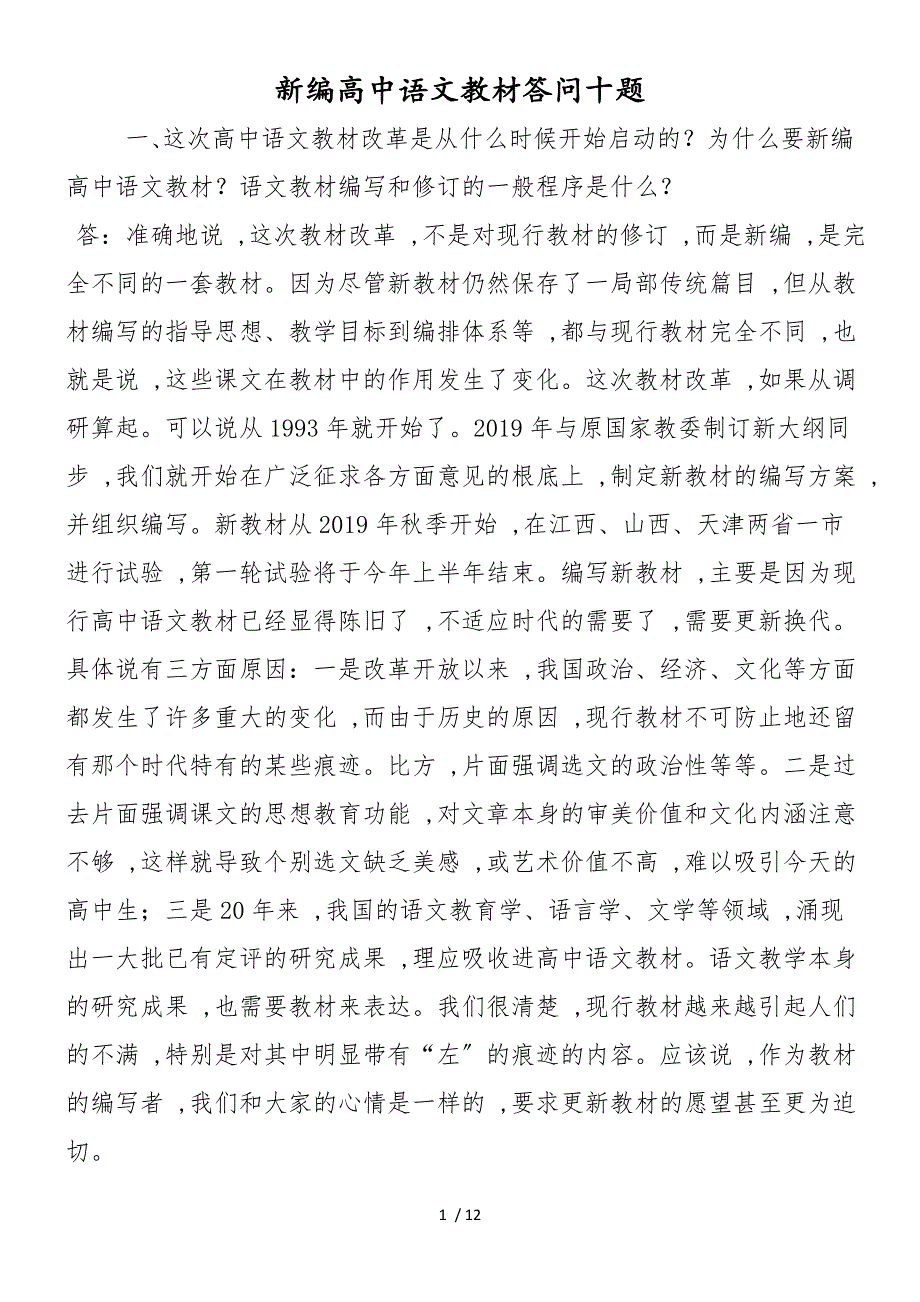 新编高中语文教材答问十题
一、这次高中语文教材改革是从什么时候开始启动的？为什么要新编
高中语文教材？语文教材编写和修订的一般程序是什么？
答：准确地说 ,这次教材改革 ,不是对现行教材的修订 ,而是新编 ,是完
全不同的一套教材。因为尽管新教材仍然保存了一局部传统篇目 ,但从教
材编写的指导思想、教学目标到编排体系等 ,都与现行教材完全不同 ,也
就是说 ,这些课文在教材中的作用发生了变化。这次教材改革 ,如果从调
研算起。可以说从 1993 年就开始了。2019 年与原国家教委制订新大纲同
步 ,我们就开始在广泛征求各方面意见的根底上 ,制定新教材的编写方案 ,
并组织编写。新教材从 2019 年秋季开始 ,在江西、山西、天津两省一市
进行试验 ,第一轮试验将于今年上半年结束。编写新教材 ,主要是因为现
行高中语文教材已经显得陈旧了 ,不适应时代的需要了 ,需要更新换代。
具体说有三方面原因：一是改革开放以来 ,我国政治、经济、文化等方面
都发生了许多重大的变化 ,而由于历史的原因 ,现行教材不可防止地还留
有那个时代特有的某些痕迹。比方 ,片面强调选文的政治性等等。二是过
去片面强调课文的思想教育功能 ,对文章本身的审美价值和文化内涵注意
不够 ,这样就导致个别选文缺乏美感 ,或艺术价值不高 ,难以吸引今天的
高中生；三是 20 年来 ,我国的语文教育学、语言学、文学等领域 ,涌现
出一大批已有定评的研究成果 ,理应吸收进高中语文教材。语文教学本身
的研究成果 ,也需要教材来表达。我们很清楚 ,现行教材越来越引起人们
的不满 ,特别是对其中明显带有“左〞的痕迹的内容。应该说 ,作为教材
的编写者 ,我们和大家的心情是一样的 ,要求更新教材的愿望甚至更为迫
切。
1 / 12